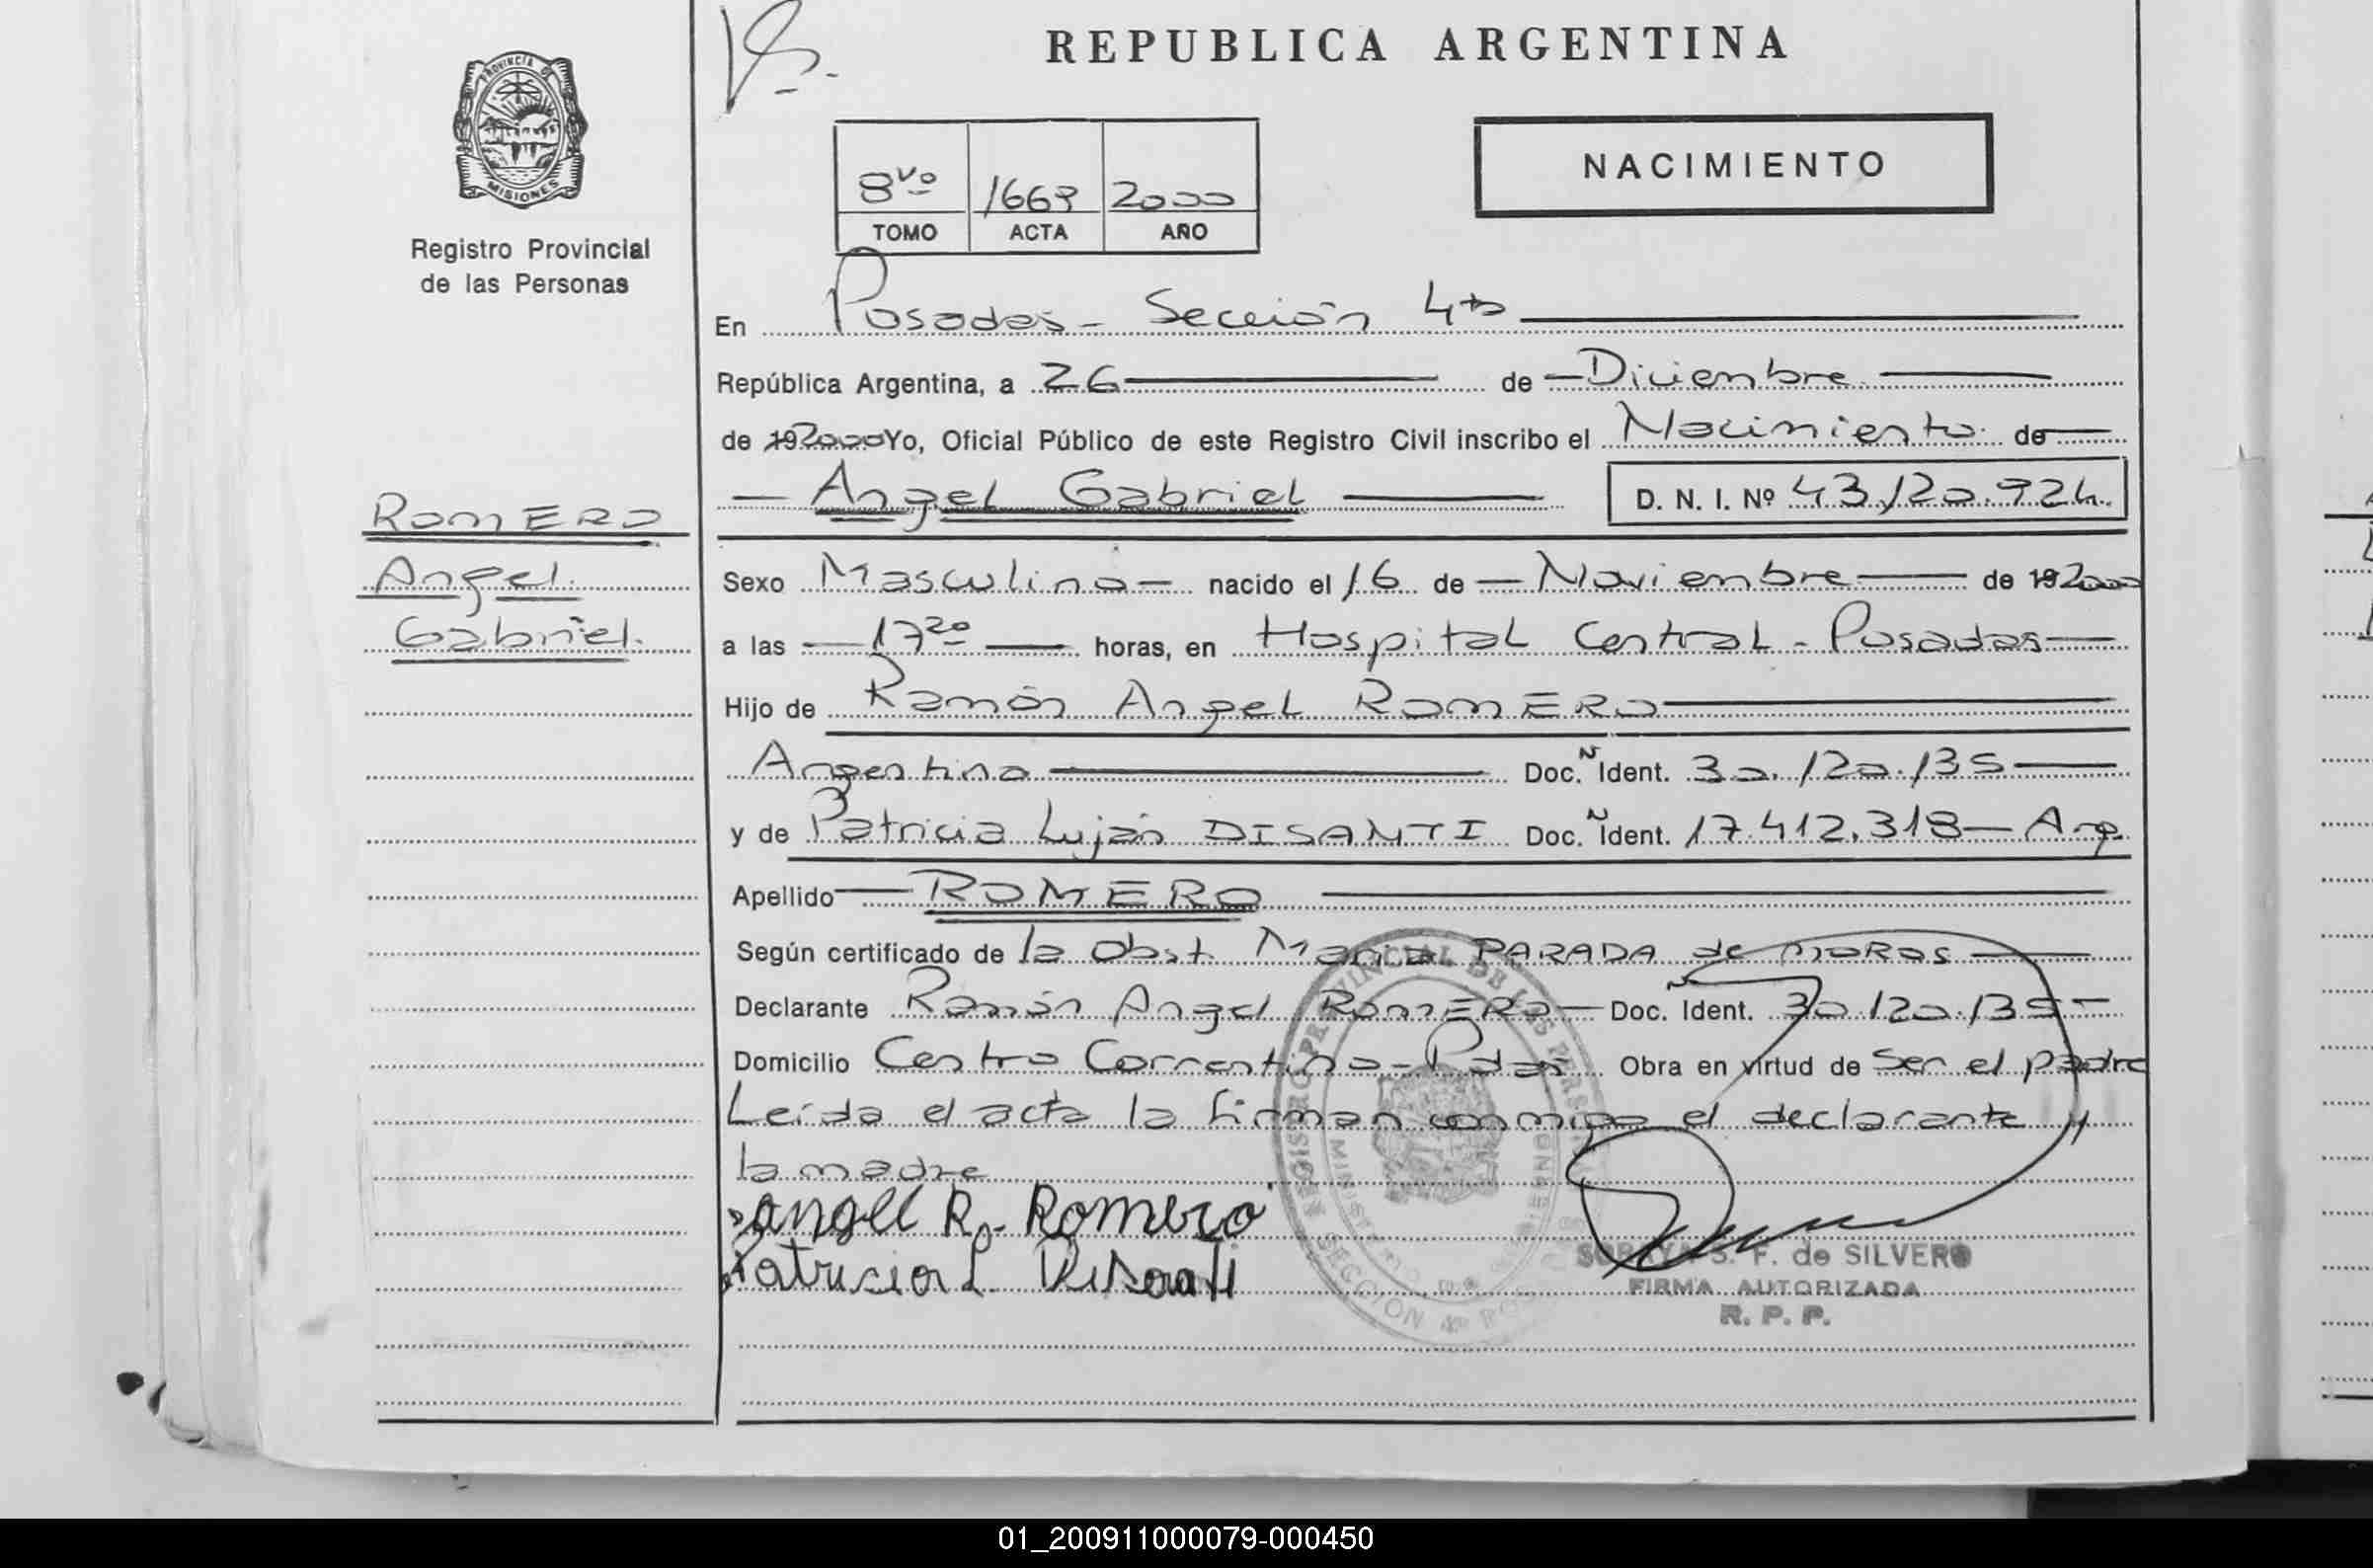 REPUBLICA ARGENTINA
PROVINCIA DE
MISIONES
Registro Provincial
de las Personas
NACIMIENTO
8vo 1669 2000
TOMO ACTA AÑO
En Posadas - Sección 4ta
República Argentina, a 26 de Diciembre
de 19 2000 Yo, Oficial Público de este Registro Civil inscribo el Nacimiento de
Angel Gabriel D. N. I. Nº 43.120.924
ROMERO
Angel
Gabriel.
Sexo Masculino nacido el 16 de Noviembre de 19 2000
a las 17 20 horas, en Hospital Central - Posadas
Hijo de Ramón Angel ROMERO
Argentina Doc. Ident. 30.120.135
y de Patricia Luján DISANTI Doc. Ident. 17.412.318 - Arg.
Apellido ROMERO
Según certificado de la Obst. Maria PARADA de MOROS
Declarante Ramón Angel ROMERO Doc. Ident. 30.120.135
Domicilio Centro Correntino - Pdas Obra en virtud de ser el padre
Leída el acta la firman conmigo el declarante y
la madre
Angel R. Romero
Patricia L. Disanti
SORAYA S. F. de SILVERO
FIRMA AUTORIZADA
R. P. P.
01_200911000079-000450